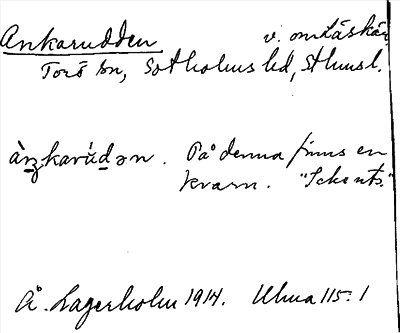 Ankarudden v. om Läskär
Torö sn, Sotholms hd, Sthms l.
àṉkarúd̲ən. På denna finns en
kvarn. "Sckonts."
Å. Lagerholm 1914. Uhua 115:1